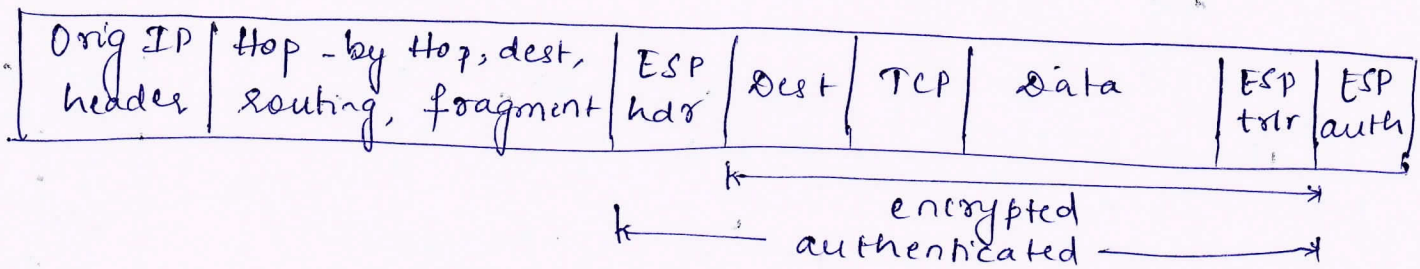 Orig IP
header
Hop-by Hop, dest,
routing, fragment
ESP
hdr
Dest
TCP
Data
ESP
trlr
ESP
auth
encrypted
authenticated